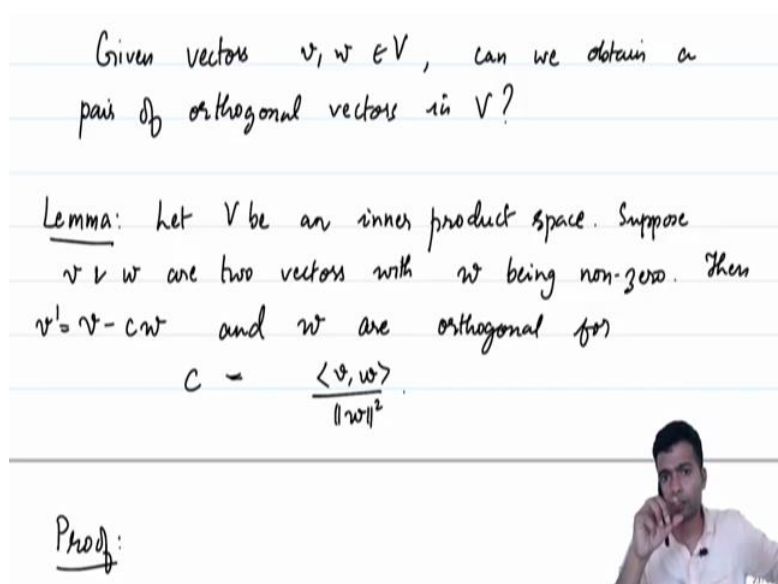 Given vectors v, w ∈ V, can we obtain a
pair of orthogonal vectors in V?
Lemma: Let V be an inner product space. Suppose
v & w are two vectors with w being non-zero. Then
v' = v - cw and w are orthogonal for
c = <v, w> / ||w||².
Proof: